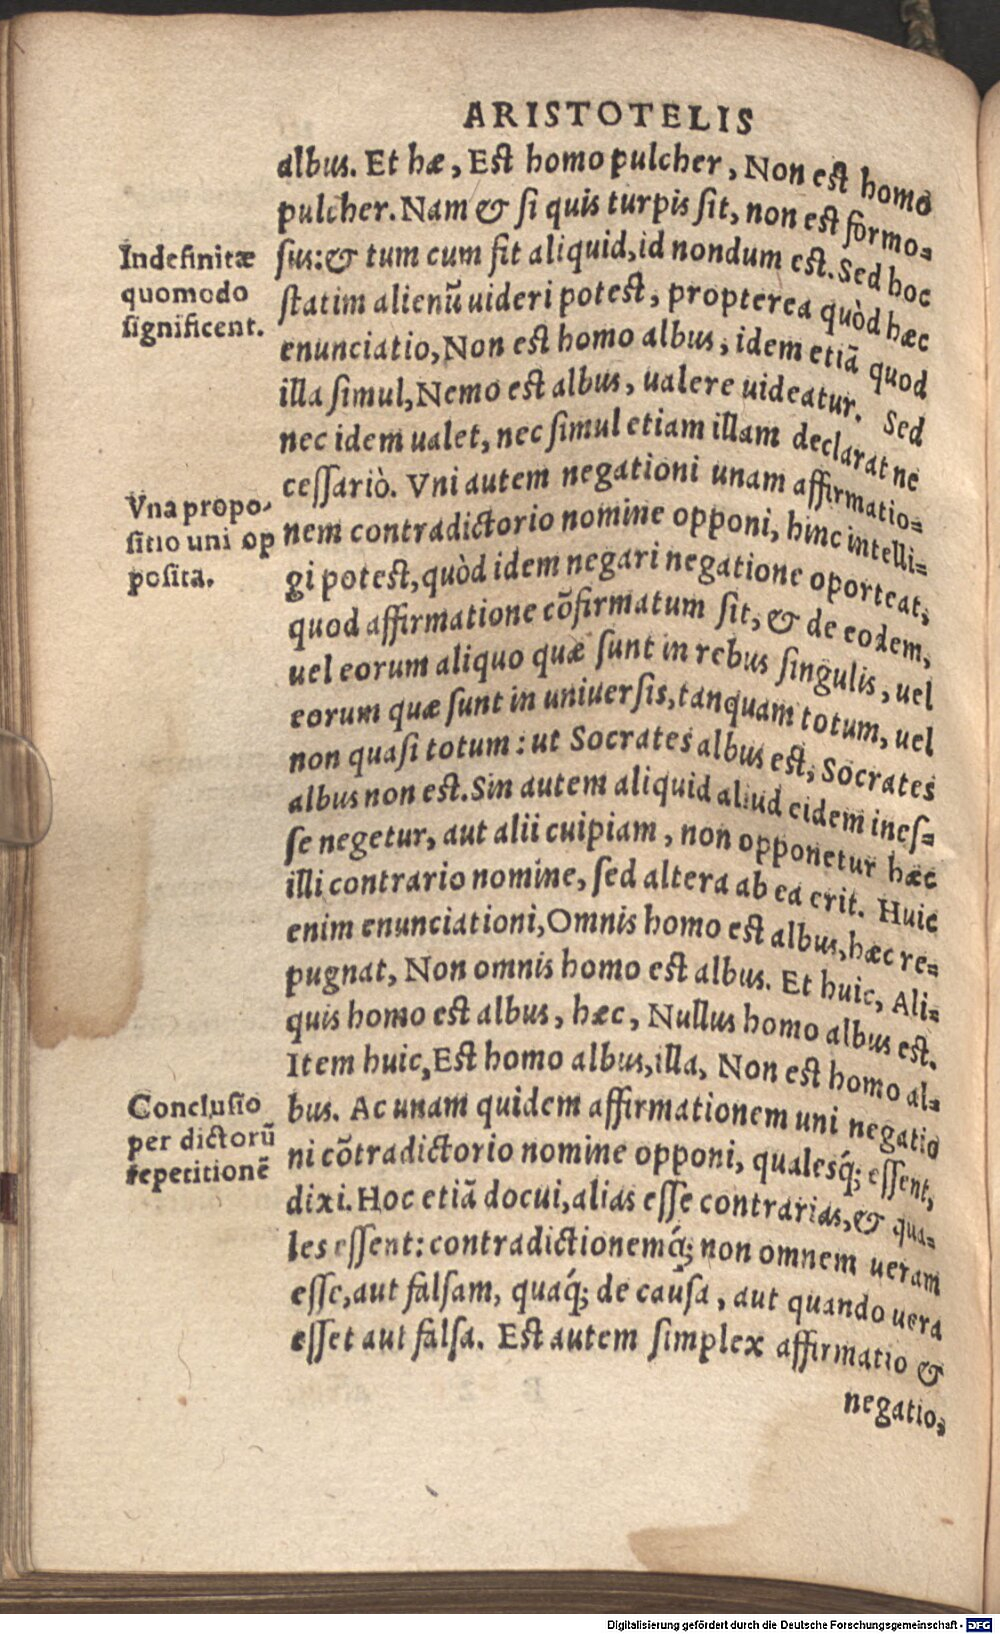 ARISTOTELIS
albus. Et hæ, Est homo pulcher, Non est homo
pulcher. Nam & si quis turpis sit, non est formo=
sus: & tum cum fit aliquid, id nondum est. Sed hoc
statim alienũ uideri potest, propterea quòd hæc
enunciatio, Non est homo albus, idem etiã quod
illa simul, Nemo est albus, ualere uideatur. Sed
nec idem ualet, nec simul etiam illam declarat ne
cessariò. Vni autem negationi unam affirmatio=
nem contradictorio nomine opponi, hinc intelli=
gi potest, quòd idem negari negatione oporteat,
quod affirmatione cõfirmatum sit, & de eodem,
uel eorum aliquo quæ sunt in rebus singulis, uel
eorum quæ sunt in uniuersis, tanquam totum, uel
non quasi totum: ut Socrates albus est, Socrates
albus non est. Sin autem aliquid aliud eidem ines=
se negetur, aut alii cuipiam, non opponetur hæc
illi contrario nomine, sed altera ab ea erit. Huic
enim enunciationi, Omnis homo est albus, hæc re=
pugnat, Non omnis homo est albus. Et huic, Ali=
quis homo est albus, hæc, Nullus homo albus est.
Item huic, Est homo albus, illa, Non est homo al=
bus. Ac unam quidem affirmationem uni negatio
ni cõtradictorio nomine opponi, qualesq́; essent,
dixi. Hoc etiã docui, alias esse contrarias, & qua=
les essent: contradictionemq́; non omnem ueram
esse, aut falsam, quaq́; de causa, aut quando uera
esset aut falsa. Est autem simplex affirmatio &
negatio,
Indefinitæ
quomodo
significent.
Vna propo-
sitio uni op
posita.
Conclusio
per dictorũ
repetitionẽ
Digitalisierung gefördert durch die Deutsche Forschungsgemeinschaft - DFG